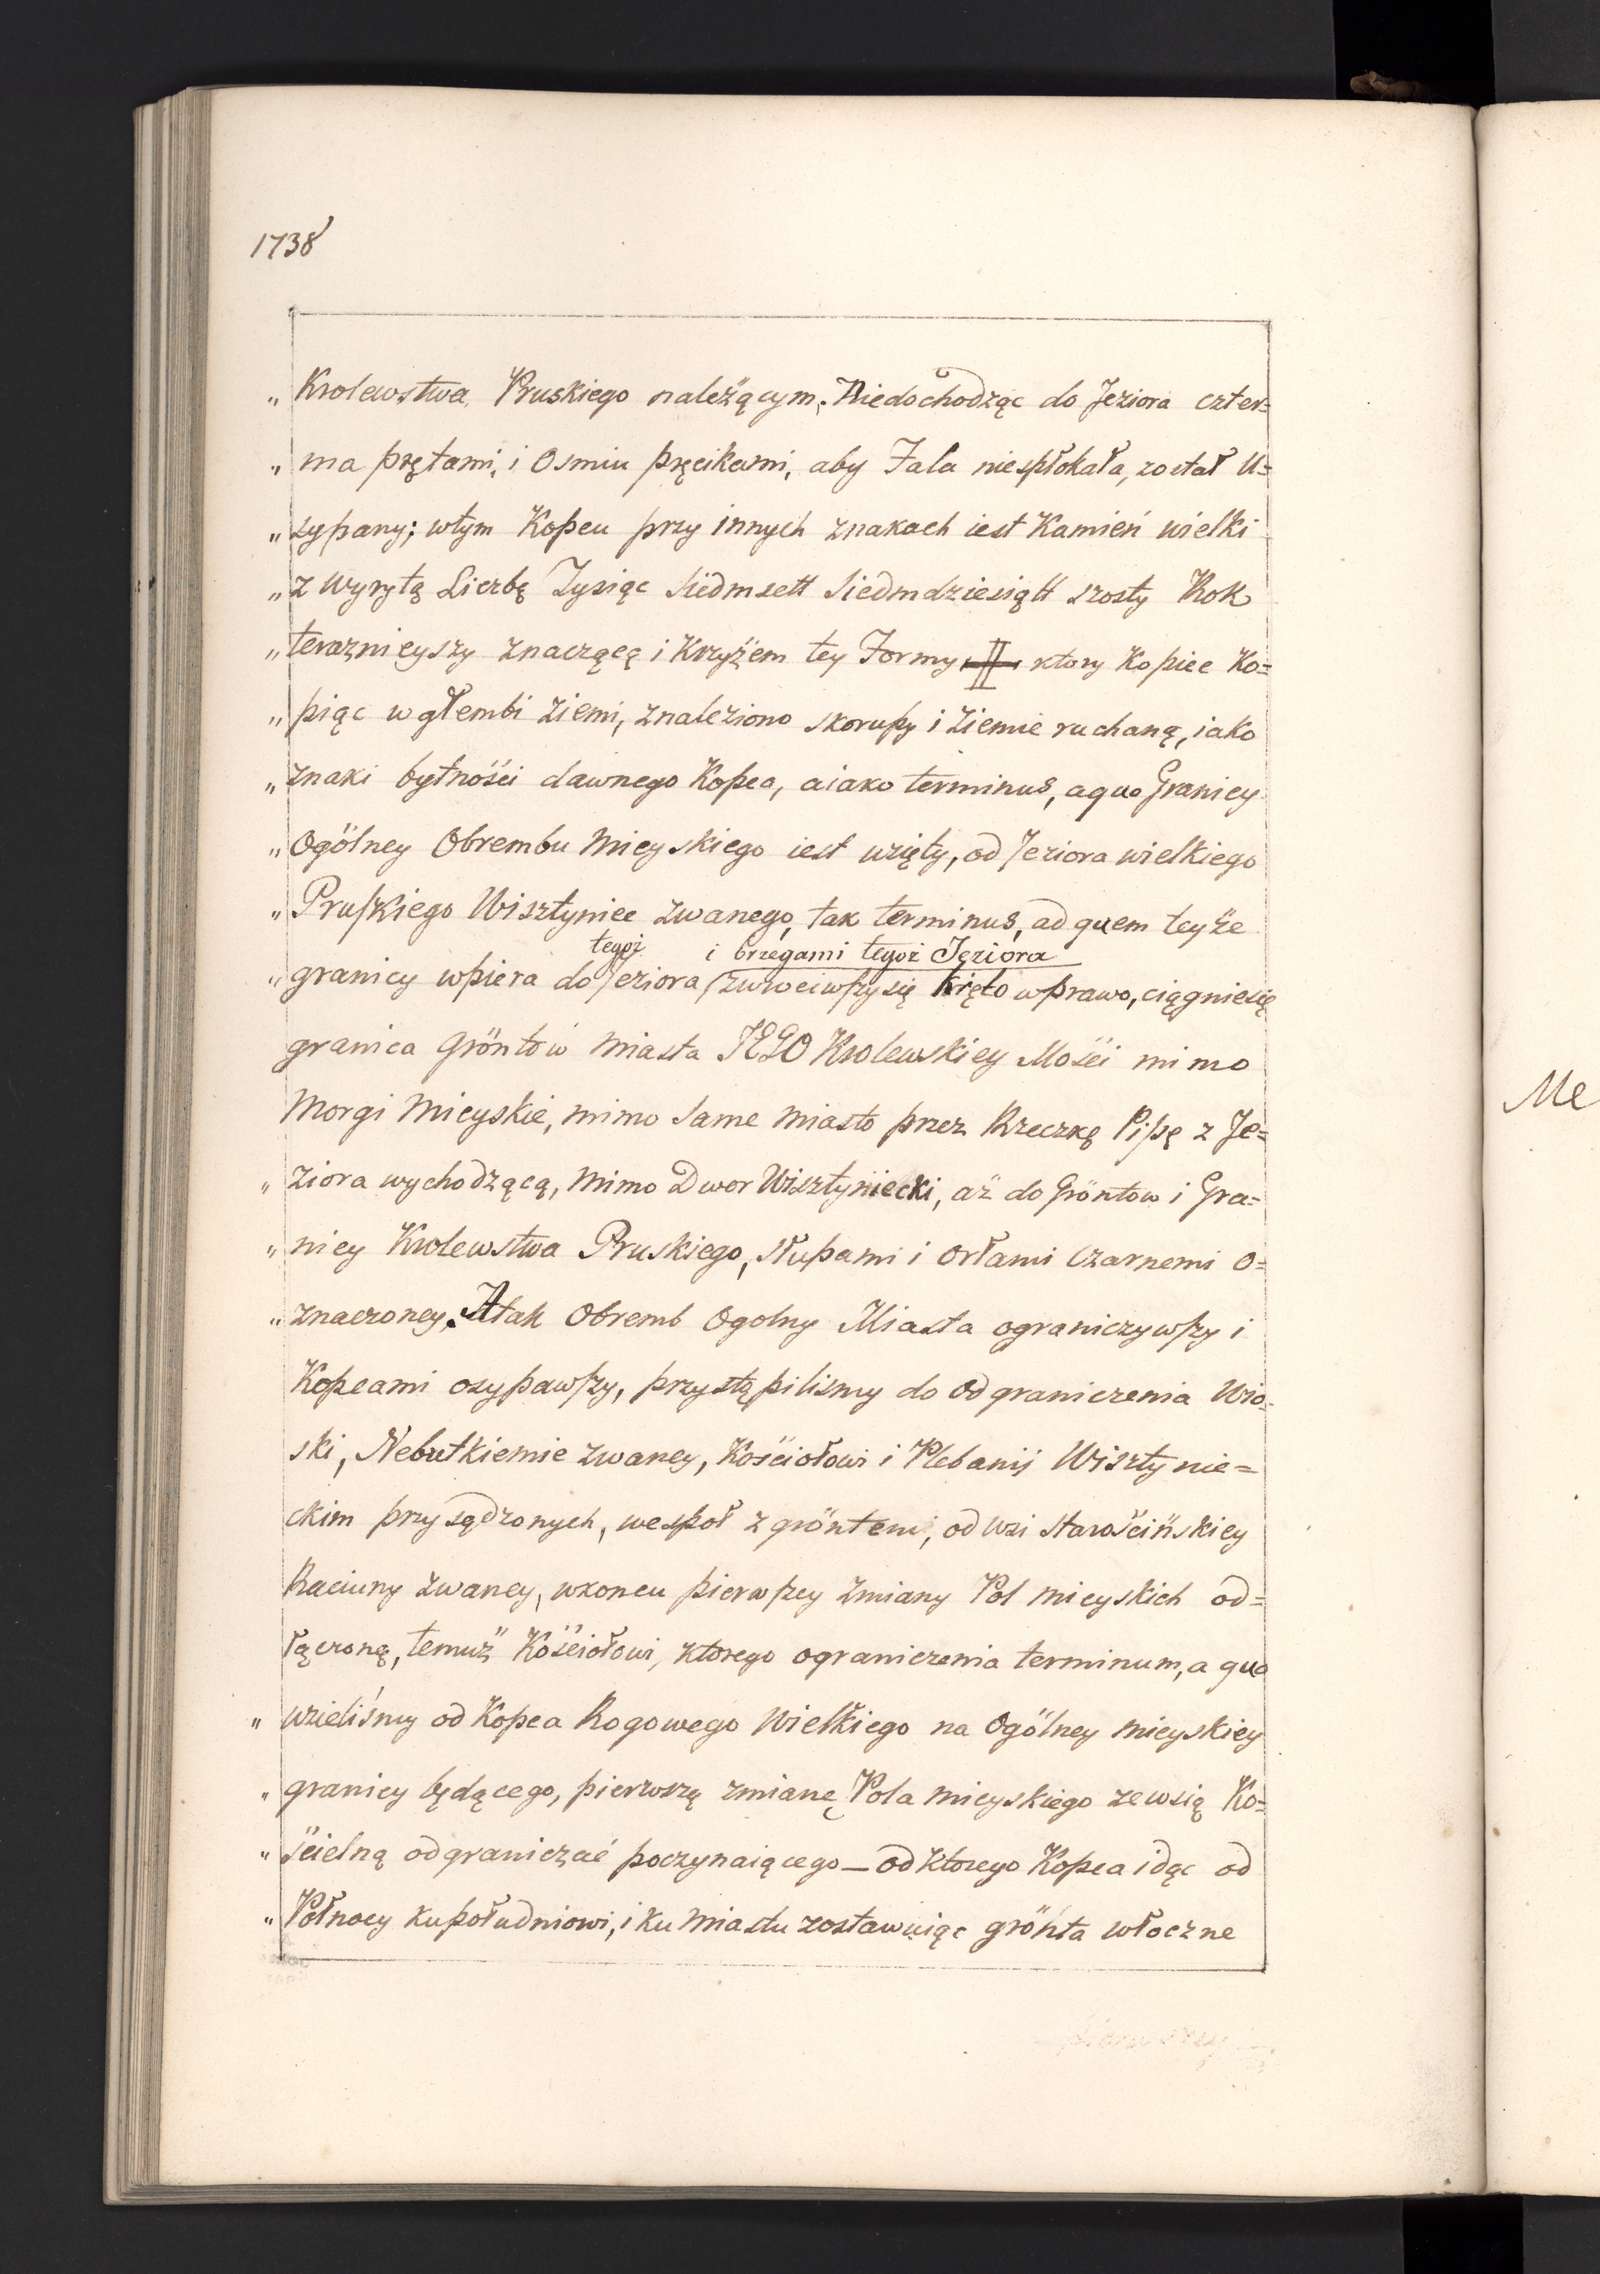 1738
„ Krolewstwa Pruskiego należącym. Niedochodząc do Jeziora czter=
„ ma prętami, i Osmiu pręcikami, aby Fala niespłokała, został U=
„ sypany; wtym Kopcu przy innych znakach iest Kamień wielki
„ z wyrytą Liczbę Tysiąc Siedmsett Siedmdziesiątt szosty Rok
„ teraznieyszy znaczącą i Krzyżem tey Formy ktory Kopiec Ko=
„ piąc w głembi ziemi, znaleziono skorupy i ziemie ruchaną, iako
„ znaki bytności dawnego Kopca, aiako terminus, a quo Granicy
„ Ogólney Obrembu Mieyskiego iest wzięty, od Jeziora wielkiego
„ Pruskiego Wisztyniec zwanego, tak terminus, ad quem teyże
tegoż i brzegami tegoż Jęziora
„ granicy wpiera do Jeziora, zwrociwszy się kręto wprawo, ciągniesię
granica Gröntów Miasta JEGO Krolewskiey Mości mimo
Morgi Mieyskie, mimo Same Miasto przez Rzeczkę Pipę z Je=
„ ziora wychodzącą, Mimo Dwor Wisztyniecki, aż do Gröntow i Gra=
„ nicy Krolewstwa Pruskiego, Słupami i Orłami Czarnemi O=
„ znaczoney. Atak Obremb Ogolny Miasta ograniczywszy i
Kopcami osypawszy, przystąpiliśmy do Odgraniczenia Wio=
ski, Nebutkiemie zwaney, Kościołowi i Plebanij Wisztynie=
ckim przysądzonych, wespoł z gröntem, od Wsi Starościńskiey
Raciuny zwaney, wkoncu pierwszey zmiany Pol mieyskich od=
łączoną, temuż Kościołowi, ktorego ograniczenia terminum, a quo
„ wzieliśmy od Kopca Rogowego Wielkiego na Ogólney mieyskiey
„ granicy będącego, pierwszą zmianę Pola mieyskiego zewsią Ko=
„ ścielną odgraniczać poczynaiącego — od ktorego Kopca idąc od
„ Połnocy kupołudniowi, i ku Miastu zostawuiąc grönta włoczne
Me